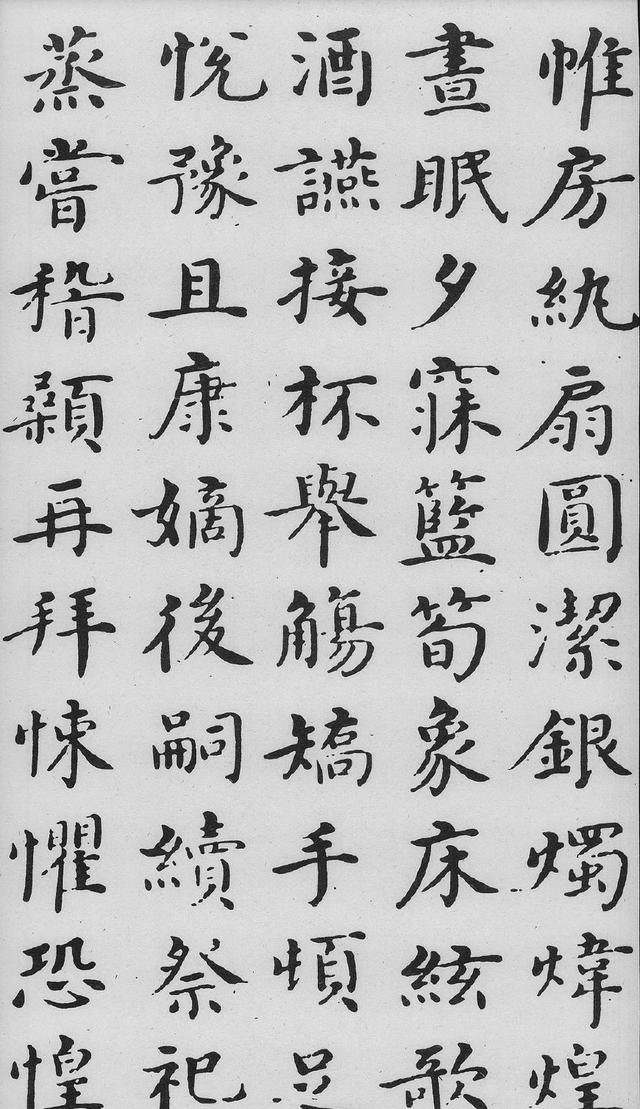 帷房紈扇圓潔銀燭煒煌
晝眠夕寐籃筍象床絃歌
酒讌接杯舉觴矯手頓足
悅豫且康嫡後嗣續祭祀
蒸嘗稽顙再拜悚懼恐惶